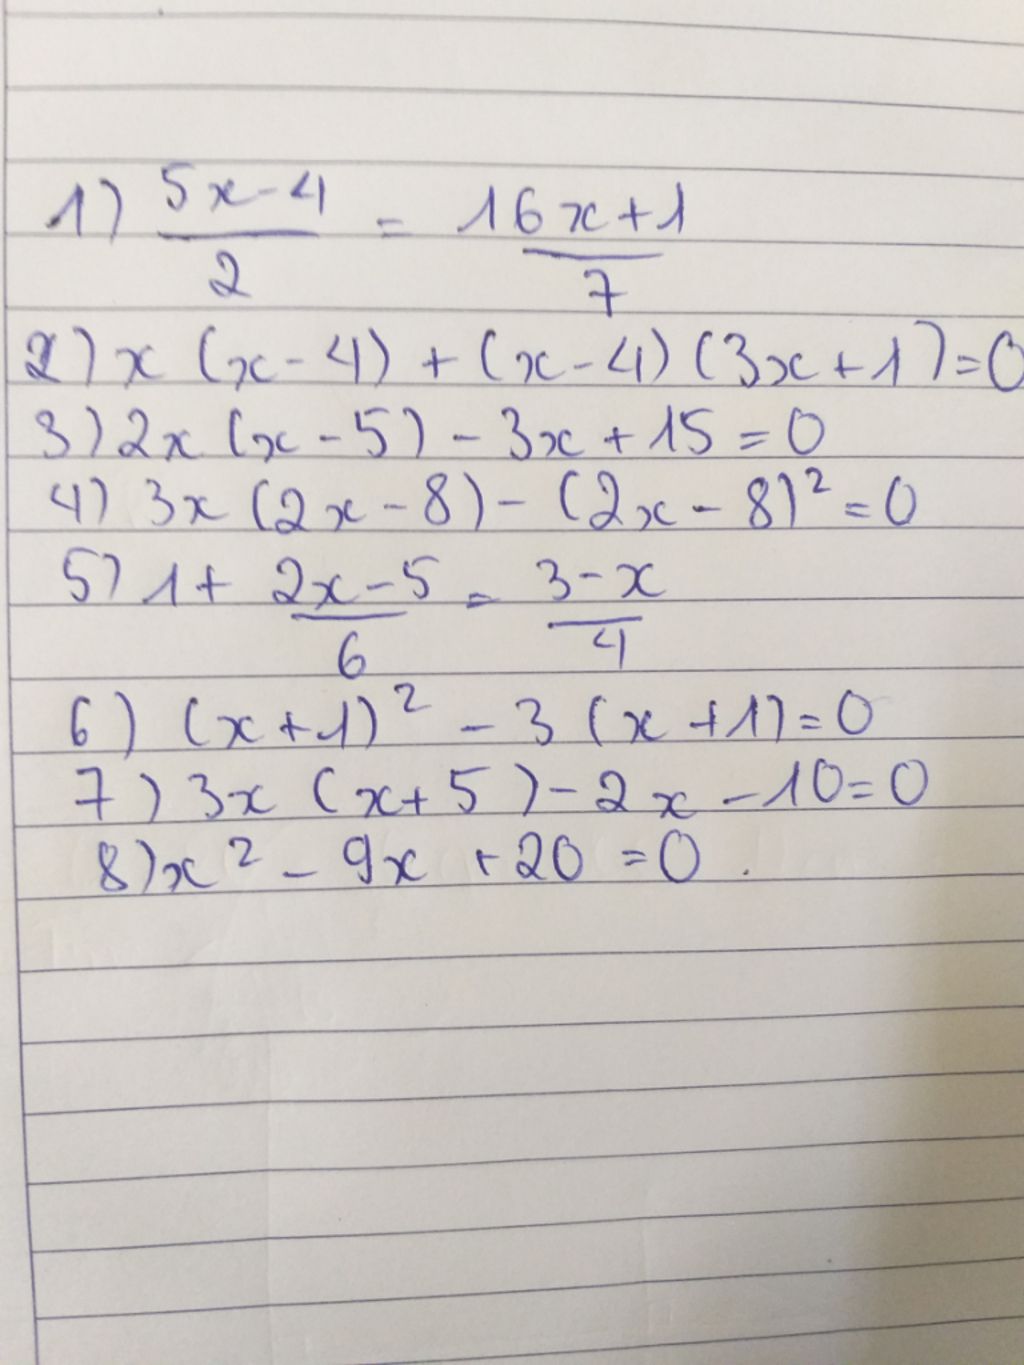 1) 5x-4/2 = 16x+1/7
2) x (x-4) + (x-4) (3x+1)=0
3) 2x (x-5) - 3x+15=0
4) 3x (2x-8)- (2x-8)²=0
5) 1+ 2x-5/6 = 3-x/4
6) (x+1)² - 3 (x+1)=0
7) 3x (x+5)-2x-10=0
8) x² - 9x +20 =0 .